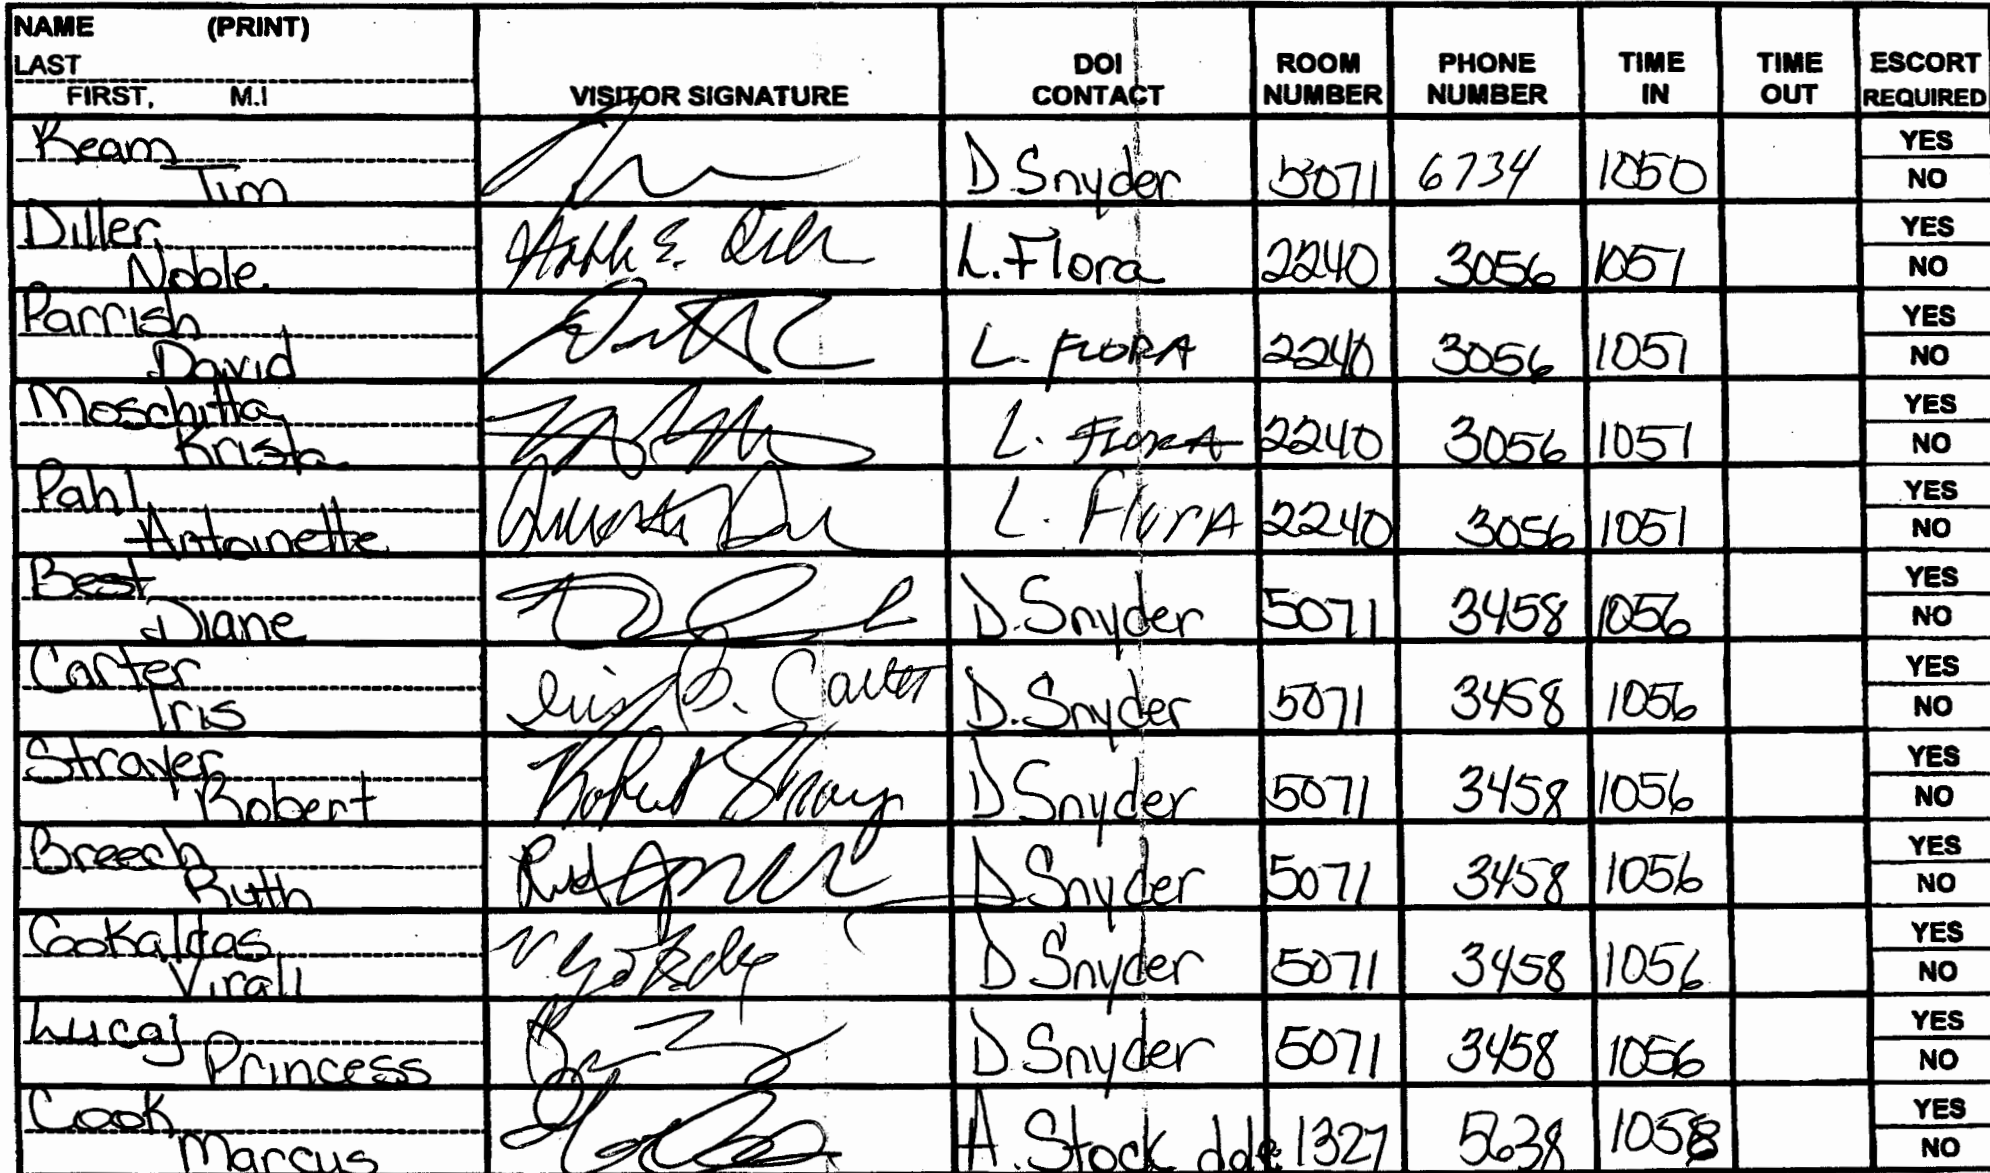 NAME (PRINT)
LAST
FIRST, M.I
VISITOR SIGNATURE
DOI CONTACT
ROOM NUMBER
PHONE NUMBER
TIME IN
TIME OUT
ESCORT REQUIRED
Ream Tim D Snyder 5071 6734 1050 YES NO
Diller, Noble L. Flora 2240 3056 1051 YES NO
Parrish David L. FLORA 2240 3056 1051 YES NO
Moschitta, Krista L. FLORA 2240 3056 1051 YES NO
Pahl Antoinette L. FlorA 2240 3056 1051 YES NO
Best Diane D. Snyder 5071 3458 1056 YES NO
Carter Iris Iris B. Carter D. Snyder 5071 3458 1056 YES NO
Strayer Robert Robert Strayer D Snyder 5071 3458 1056 YES NO
Breech Ruth D Snyder 5071 3458 1056 YES NO
Virali D Snyder 5071 3458 1056 YES NO
Lucaj Princess D Snyder 5071 3458 1056 YES NO
Cook Marcus A. Stock dale 1327 5638 1058 YES NO